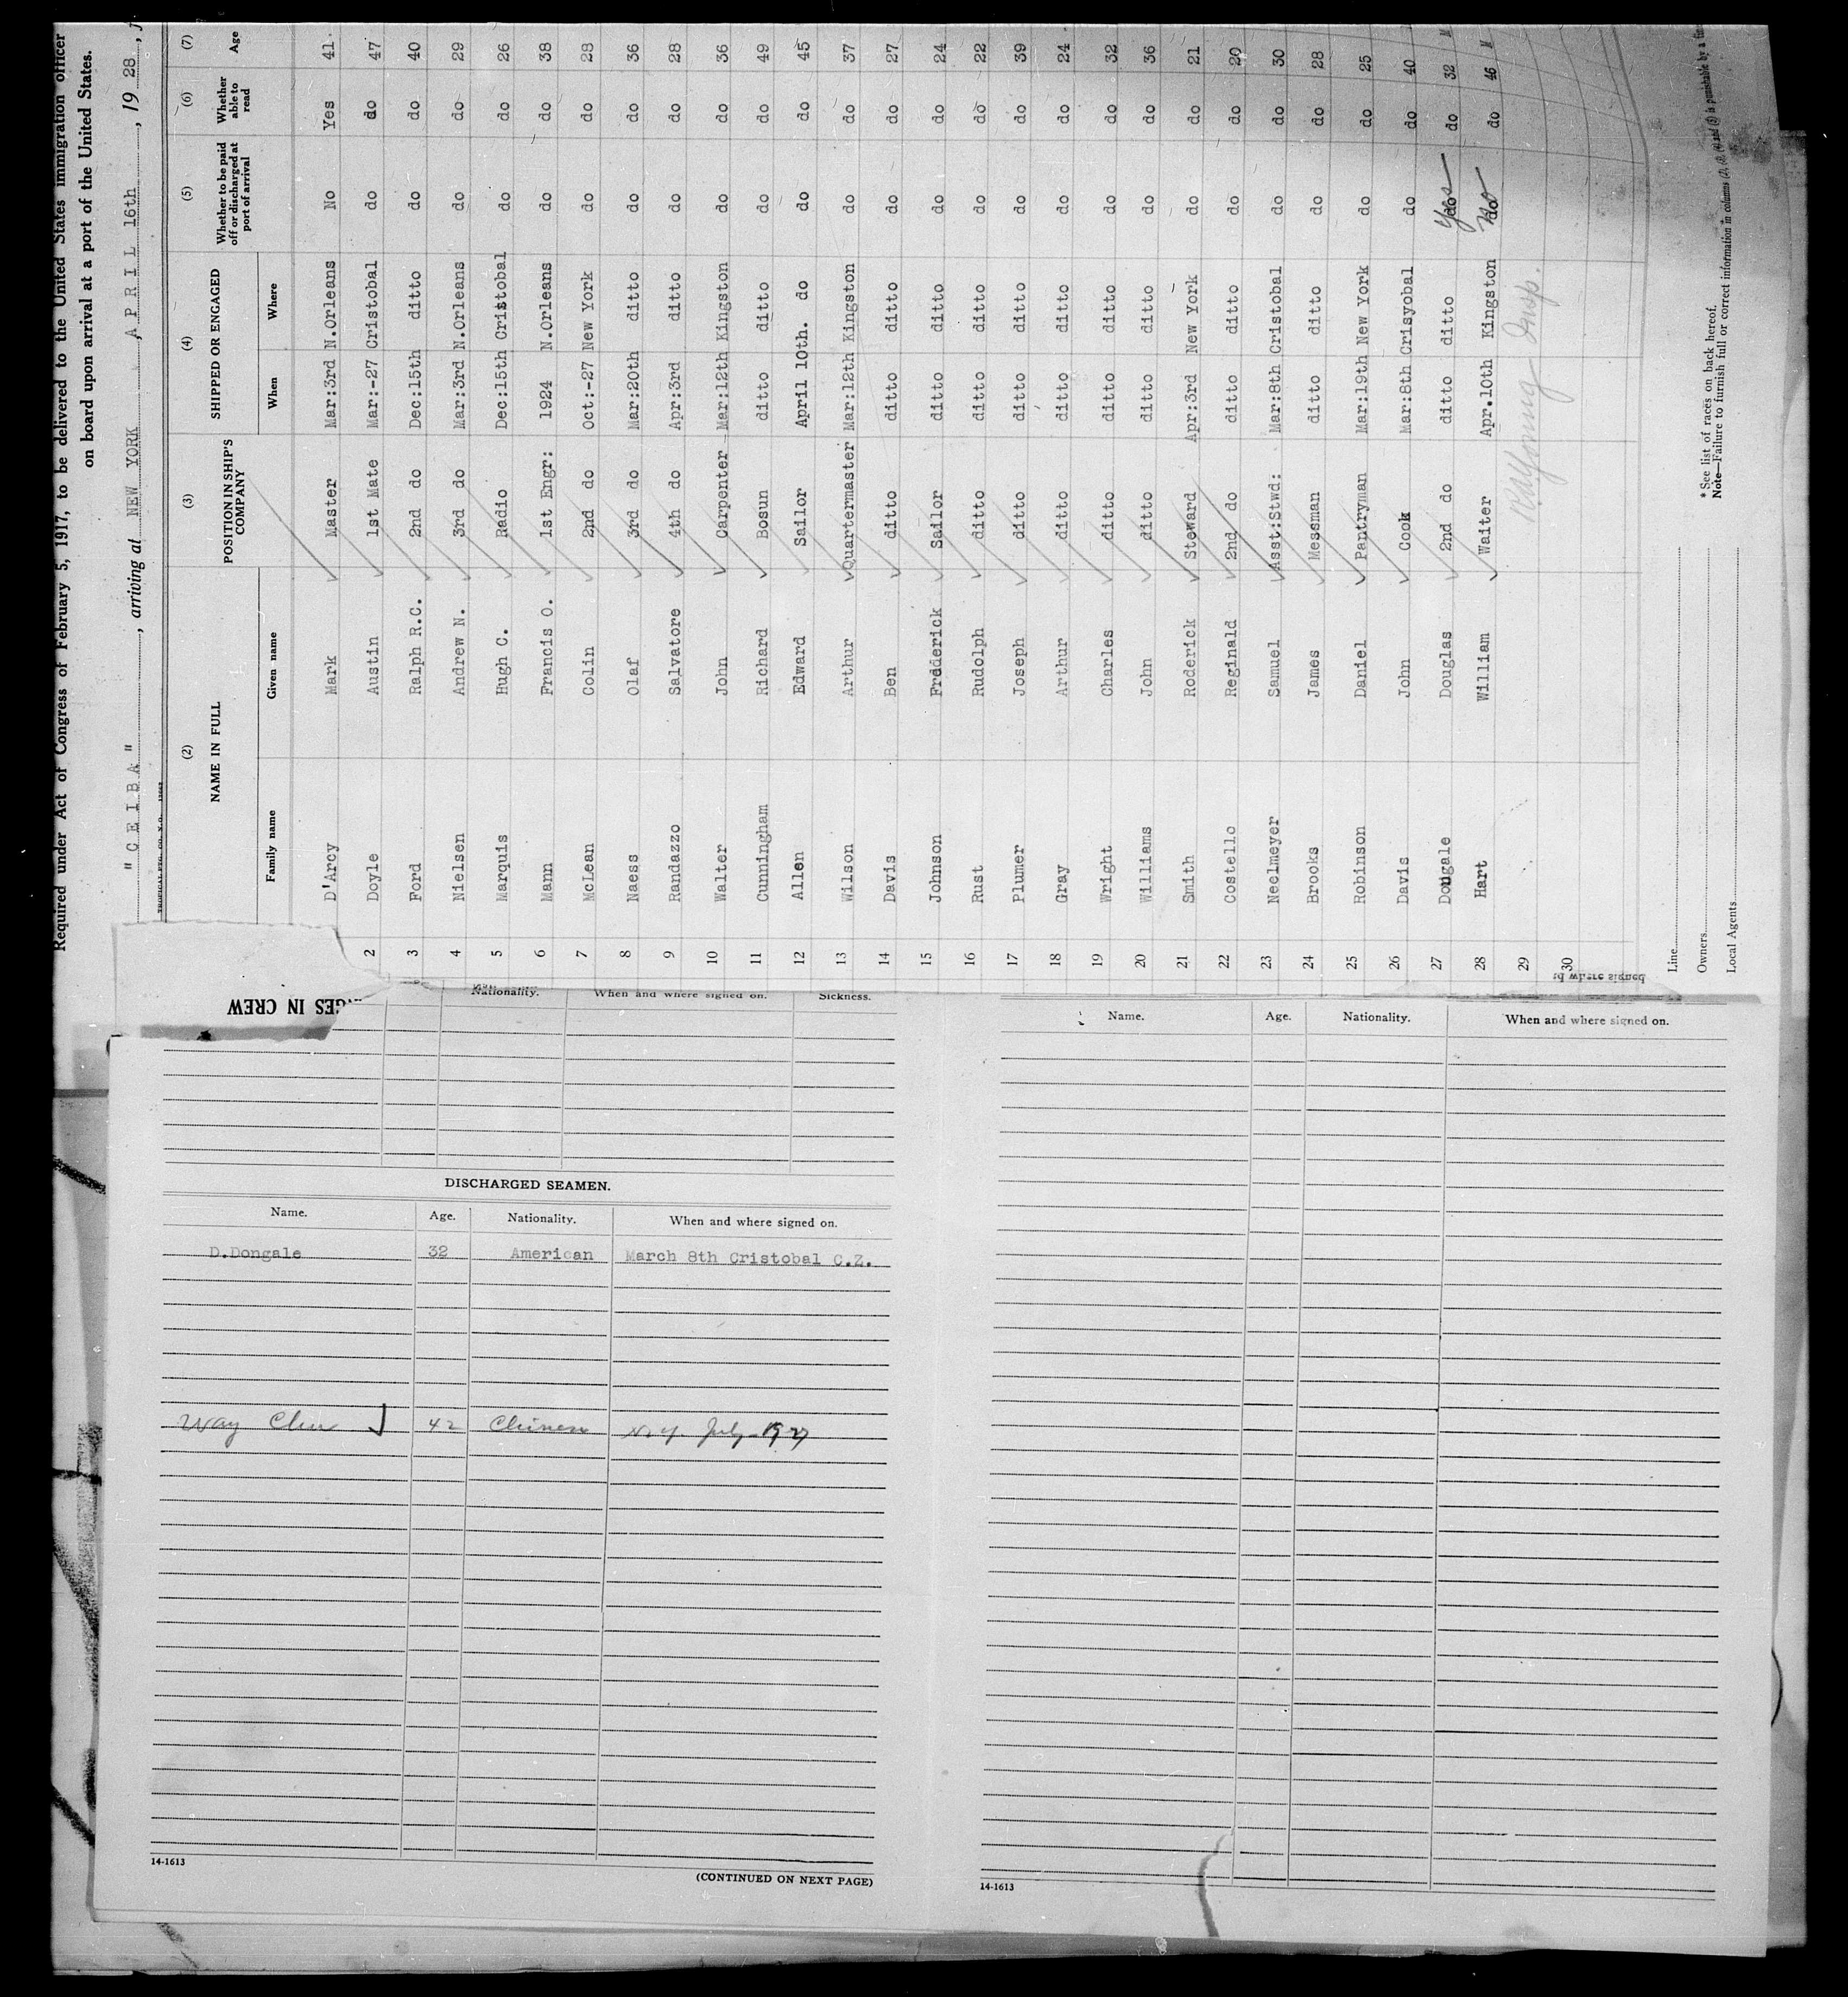 Required under Act of Congress of February 5, 1917, to be delivered to the United States immigration officer
on board upon arrival at a port of the United States.
"CEIBA", arriving at NEW YORK, APRIL 16th, 1928,
(2) (3) (4) (5) (6) (7)
NAME IN FULL POSITION IN SHIP'S COMPANY SHIPPED OR ENGAGED Whether to be paid off or discharged at port of arrival Whether able to read Age
Family name Given name When Where
D'Arcy Mark Master Mar:3rd N.Orleans No Yes 41
2 Doyle Austin 1st Mate Mar:-27 Cristobal do do 47
3 Ford Ralph R.C. 2nd do Dec:15th ditto do do 40
4 Nielsen Andrew N. 3rd do Mar:3rd N.Orleans do do 29
5 Marquis Hugh C. Radio Dec:15th Cristobal do do 26
6 Mann Francis O. 1st Engr: 1924 N.Orleans do do 38
7 McLean Colin 2nd do Oct:-27 New York do do 28
8 Naess Olaf 3rd do Mar:20th ditto do do 36
9 Randazzo Salvatore 4th do Apr:3rd ditto do do 28
10 Walter John Carpenter Mar:12th Kingston do do 36
11 Cunningham Richard Bosun ditto ditto do do 49
12 Allen Edward Sailor April 10th. do do do 45
13 Wilson Arthur Quartermaster Mar:12th Kingston do do 37
14 Davis Ben ditto ditto ditto do do 27
15 Johnson Frederick Sailor ditto ditto do do 24
16 Rust Rudolph ditto ditto ditto do do 22
17 Plumer Joseph ditto ditto ditto do do 39
18 Gray Arthur ditto ditto ditto do do 24
19 Wright Charles ditto ditto ditto do do 32
20 Williams John ditto ditto ditto do do 36
21 Smith Roderick Steward Apr:3rd New York do do 21
22 Costello Reginald 2nd do ditto ditto do do 20
23 Neelmeyer Samuel Asst:Stwd: Mar:8th Cristobal do do 30
24 Brooks James Messman ditto ditto do do 28
25 Robinson Daniel Pantryman Mar:19th New York do do 25
26 Davis John Cook Mar:8th Crisyobal do do 40
27 Dougale Douglas 2nd do ditto ditto do Yes do 32 M
28 Hart William Waiter Apr.10th Kingston do No do 46 M
29
30
Line
Owners
Local Agents
* See list of races on back hereof.
Note—Failure to furnish full or correct information in columns (2), (3), (4) and (5) is punishable by a fine
GES IN CREW
Nationality. When and where signed on. Sickness.
nd where signed
DISCHARGED SEAMEN.
Name. Age. Nationality. When and where signed on.
D.Dongale 32 American March 8th Cristobal C.Z.
Way Chu 42 Chinese N.Y. July-1927
14-1613
(CONTINUED ON NEXT PAGE)
Name. Age. Nationality. When and where signed on.
14-1613